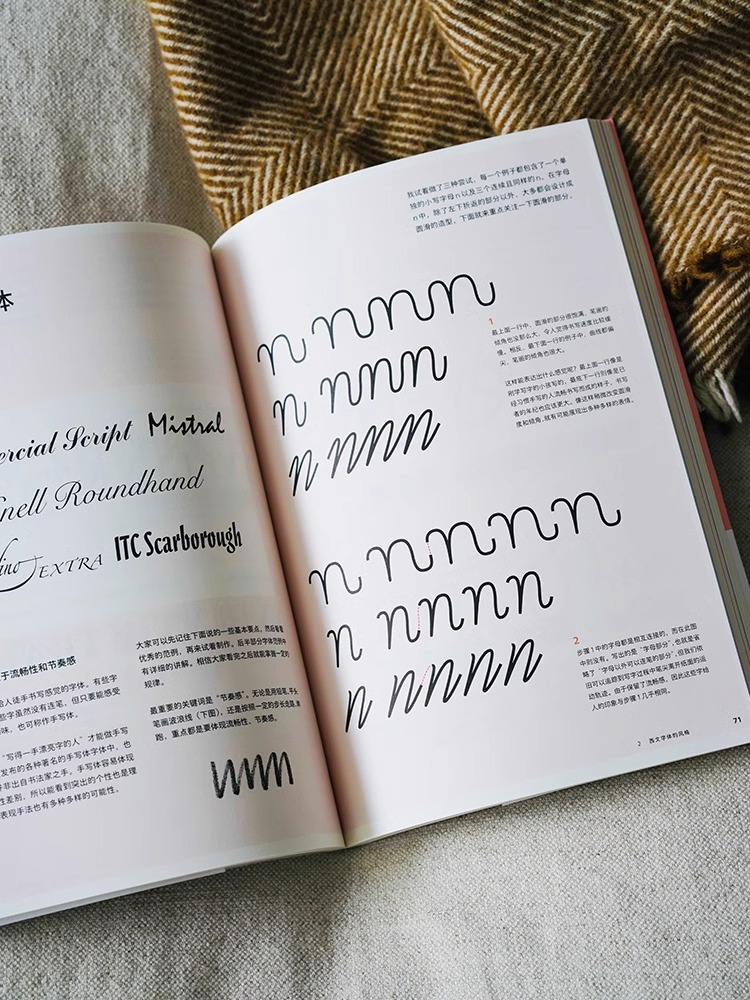 体
ercial Script Mistral
nell Roundhand
ino EXTRA ITC Scarborough
于流畅性和节奏感
人徒手书写感觉的字体。有些字
些字虽然没有连笔，但只要能感受
味，也可称作手写体。
“写得一手漂亮字的人”才能做手写
发布的各种著名的手写体字体中，也
非出自书法家之手。手写体容易体现
性差别，所以能看到突出的个性也是理
表现手法也有多种多样的可能性。
大家可以先记住下面说的一些基本要点，然后看看
优秀的范例，再来试着制作。后半部分字体范例中
有详细的讲解。相信大家看完之后就能掌握一定的
规律。
最重要的关键词是“节奏感”。无论是用铅笔、平头
笔画波浪线（下图），还是按照一定的步长走路、演
跑，重点都是要体现流畅性、节奏感。
我试着做了三种尝试，每一个例子都包含了一个单
独的小写字母n以及三个连续且同样的n。在字母
n中，除了左下折返的部分以外，大多都会设计成
圆滑的造型。下面就来重点关注一下圆滑的部分。
n nnnn
n nnnn
n nnnn
1
最上面一行中，圆滑的部分很饱满，笔画的
倾角也没那么大，令人觉得书写速度比较缓
慢。相反，最下面一行的例子中，曲线都偏
尖，笔画的倾角也很大。
这样能表达出什么感觉呢？最上面一行像是
刚学写字的小孩写的，最底下一行则像是已
经习惯手写的人流畅书写而成的样子，书写
者的年纪也应该更大。像这样稍微改变圆滑
度和倾角，就有可能展现出多种多样的表情。
n nnnn
n nnnn
n nnnn
2
步骤1中的字母都是相互连接的，而在此图
中则没有。写出的是“字母部分”，也就是省
略了“字母以外可以连笔的部分”，但我们依
旧可以追踪到写字过程中笔尖离开纸面的运
动轨迹。由于保留了流畅感，因此这些字给
人的印象与步骤1几乎相同。
2 西文字体的风格 71